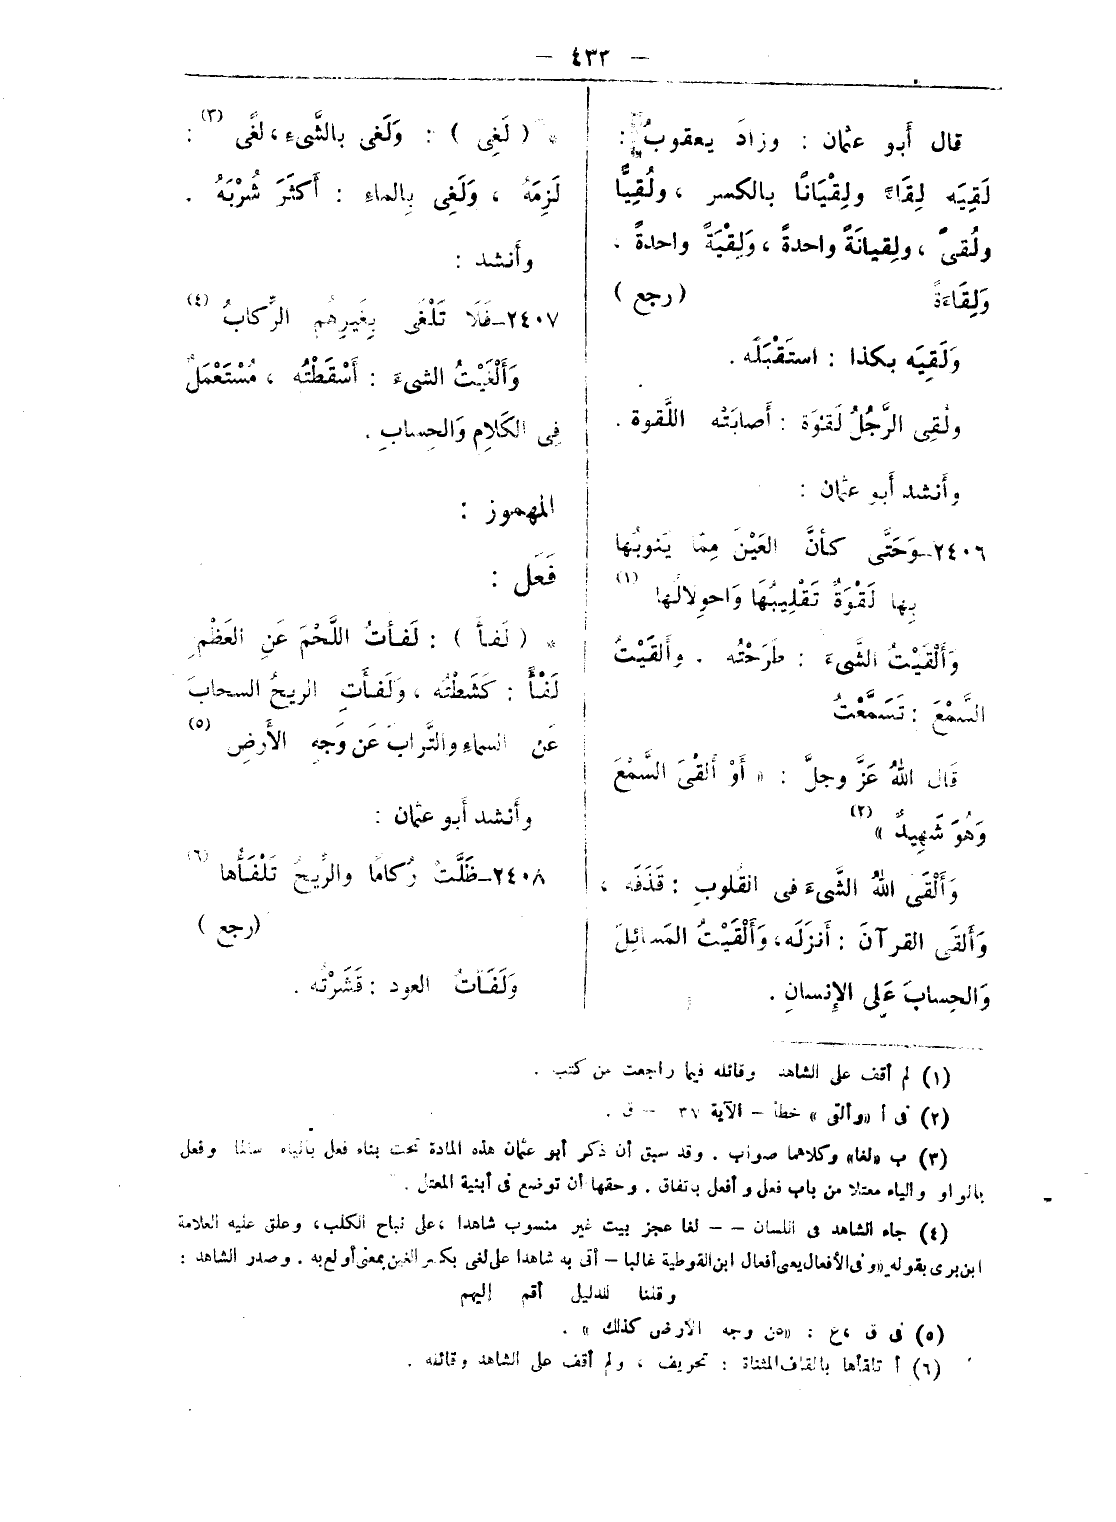 — ٤٣٢ —
قال أَبو عثمان : وزادَ يعقوبُ :
لَقِيَه لِقَاءً ولِقْيَانًا بالكسر ، ولُقِيًّا
ولُقىً ، ولِقيانَةً واحدةً ، وَلِقْيَةً واحدةً ،
وَلِقَاءَةً (رجع)
وَلَقِيَه بكذا : استَقْبَلَه .
ولُقِى الرَّجُلُ لَقوَة : أَصابَتْه اللَّقوة .
وأَنشد أَبو عثمان :
٢٤٠٦ــوَحَتَّى كأَنَّ العَيْنَ مِمّا يَنوبُها
بِها لَقْوَةٌ تَقْلِيبُهَا وَاحوِلالُها (١)
وَأَلْقَيْتُ الشَّىءَ : طَرَحْتُه . وأَلقَيْتُ
السَّمْعَ : تَسَمَّعْتُ
قَال اللهُ عَزَّ وجلَّ : « أَوْ أَلقْىَ السَّمْعَ
وَهُوَ شَهِيدٌ » (٢)
وَأَلْقَى اللهُ الشَّىءَ فى القُلوبِ : قَذَفَه ،
وَأَلقَى القرآنَ : أَنزَلَه، وَأَلْقَيْتُ المَسائِلَ
وَالحِسابَ عَلى الإِنسانِ .
* ( لَغِى ) : وَلَغى بالشَّىءِ، لغًى (٣) :
لَزِمَهُ ، وَلَغِى بِالماءِ : أَكثَرَ شُرْبَهُ .
وأَنشد :
٢٤٠٧ــفَلَا تَلْغَى بِغَيرِهُم الرِّكابُ (٤)
وَأَلْغَيْتُ الشىءَ : أَسْقَطْتُه ، مُسْتَعْمَلٌ
فِى الكَلامِ وَالحِسابِ .
المهموز :
فَعَل :
* ( لَفأَ ) : لَفأْتُ اللَّحْمَ عَنِ العَظْمِ
لَفْأً : كَشَطْتُه ، وَلَفأَتِ الريحُ السحابَ
عَن السماءِ والتَّرابَ عَن وَجهِ الأَرضِ (٥)
وأَنشد أَبو عثمان :
٢٤٠٨ــظَلَّتْ رُكامًا والرِّيحُ تَلْفَأُها (٦)
(رجع)
وَلَفَأْتُ العود : قَشَرْتُه .
(١) لم أقف على الشاهد وقائله فيما راجعت من كتب .
(٢) فى أ «وألقى» خطأ – الآية ٣٧ – ق .
(٣) ب «لغا» وكلاهما صواب . وقد سبق أن ذكر أبو عثمان هذه المادة تحت بناء فعل بالياء سالما وفعل
بالواو والياء معتلا من باب فعل وأفعل باتفاق . وحقها أن توضع فى أبنية المعتل .
(٤) جاء الشاهد فى اللسان – – لغا عجز بيت غير منسوب شاهدا ،على نباح الكلب، وعلق عليه العلامة
ابن برى بقوله «وفى الأفعال يعى أفعال ابن القوطية غالبا – أتى به شاهدا على لغى بكسر الغين بمعنى أولع به . وصدر الشاهد :
وقلنا للدليل أقم إليهم
(٥) فى ق ،ع : «من وجه الأرض كذلك » .
(٦) أ تلقأها بالقاف المثناة : تحريف ، ولم أقف على الشاهد وقائله .